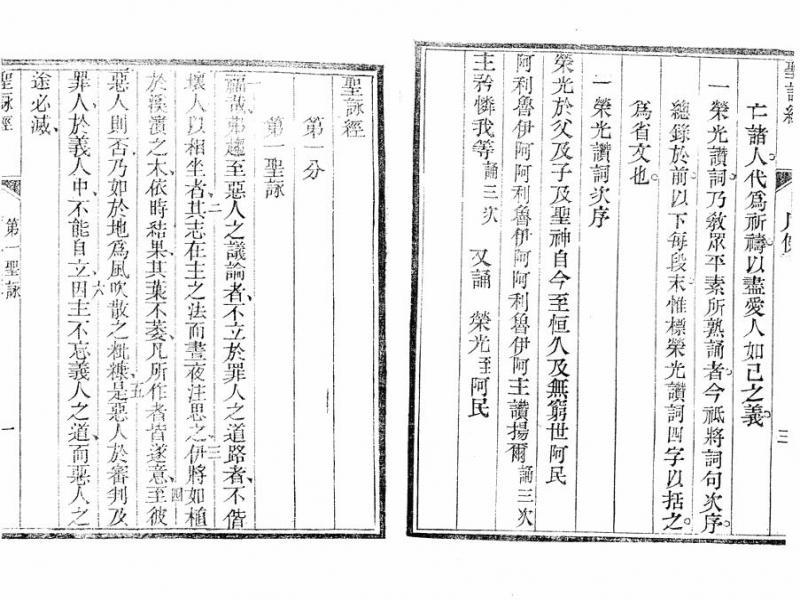 亡諸人代爲祈禱以盡愛人如己之義
一榮光讚詞乃敎眾平素所熟誦者今祗將詞句次序
總錄於前以下每段末惟標榮光讚詞四字以括之
爲省文也
一榮光讚詞次序
榮光於父及子及聖神自今至恒久及無窮世阿民
阿利魯伊阿阿利魯伊阿阿利魯伊阿主讚揚爾誦三次
主矜憐我等誦三次 又誦 榮光至阿民
三
聖詠經
第一分
第一聖詠
一福哉弗趨至惡人之議論者不立於罪人之道路者不偕
壞人以相坐者二其志在主之法而晝夜注思之三伊將如植
於溪濱之木依時結果其葉不萎凡所作者皆遂意四至彼
惡人則否乃如於地爲風吹散之粃糠五是惡人於審判及
罪人於義人中不能自立六因主不忘義人之道而惡人之
途必滅
聖詠經
第一聖詠
一